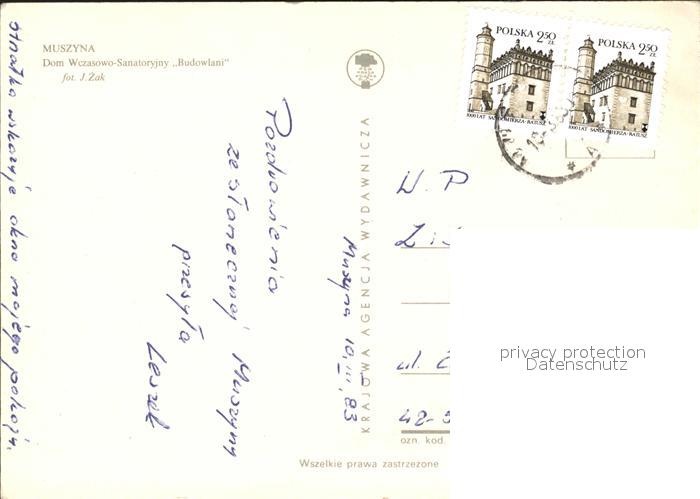 MUSZYNA
Dom Wczasowo-Sanatoryjny „Budowlani"
fot. J.Żak
POLSKA 2,50 ZŁ
1000 LAT SANDOMIERZA · RATUSZ
POLSKA 2,50 ZŁ
1000 LAT SANDOMIERZA · RATUSZ
Pozdrowienia
ze słonecznej Muszyny
przesyła
Leszek
Muszyna 10.III.83
wskazuje okno mojego pokoju.
KRAJOWA AGENCJA WYDAWNICZA
W. P
ul.
48-
ozn. kod.
Wszelkie prawa zastrzeżone
privacy protection
Datenschutz